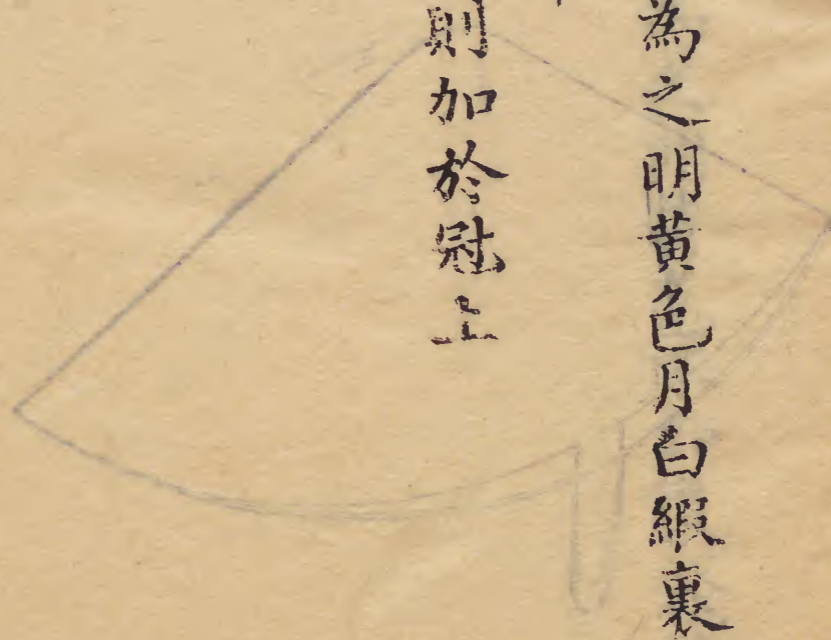 為之明黃色月白緞裏
則加於冠上